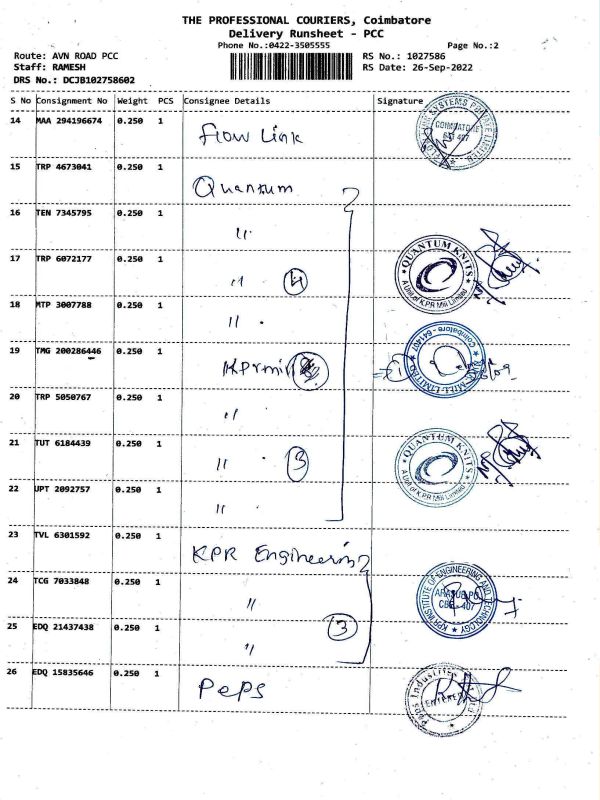 THE PROFESSIONAL COURIERS, Coimbatore
Delivery Runsheet - PCC
Phone No.:0422-3505555 Page No.:2
Route: AVN ROAD PCC RS No.: 1027586
Staff: RAMESH RS Date: 26-Sep-2022
DRS No.: DCJB102758602
S No Consignment No Weight PCS Consignee Details Signature
14 MAA 294196674 0.250 1 Flow Link
COIMBATORE
641 407
15 TRP 4673041 0.250 1 Quantum
16 TEN 7345795 0.250 1 "
17 TRP 6072177 0.250 1 " 4
QUANTUM KNITS
A Unit of K.P.R Mill Limited
18 MTP 3007788 0.250 1 "
19 TMG 200286446 0.250 1 KPR mill
Coimbatore - 641407
MILL LIMITED
20 TRP 5050767 0.250 1 "
21 TUT 6184439 0.250 1 " 3
QUANTUM KNITS
A Unit of K.P.R Mill Limited
22 UPT 2092757 0.250 1 "
23 TVL 6301592 0.250 1 KPR Engineering
24 TCG 7033848 0.250 1 "
KPR INSTITUTE OF ENGINEERING AND TECHNOLOGY
ARASUR PO.
CBE - 407
25 EDQ 21437438 0.250 1 " 3
26 EDQ 15835646 0.250 1 Peps
Peps Industries
ENTERED